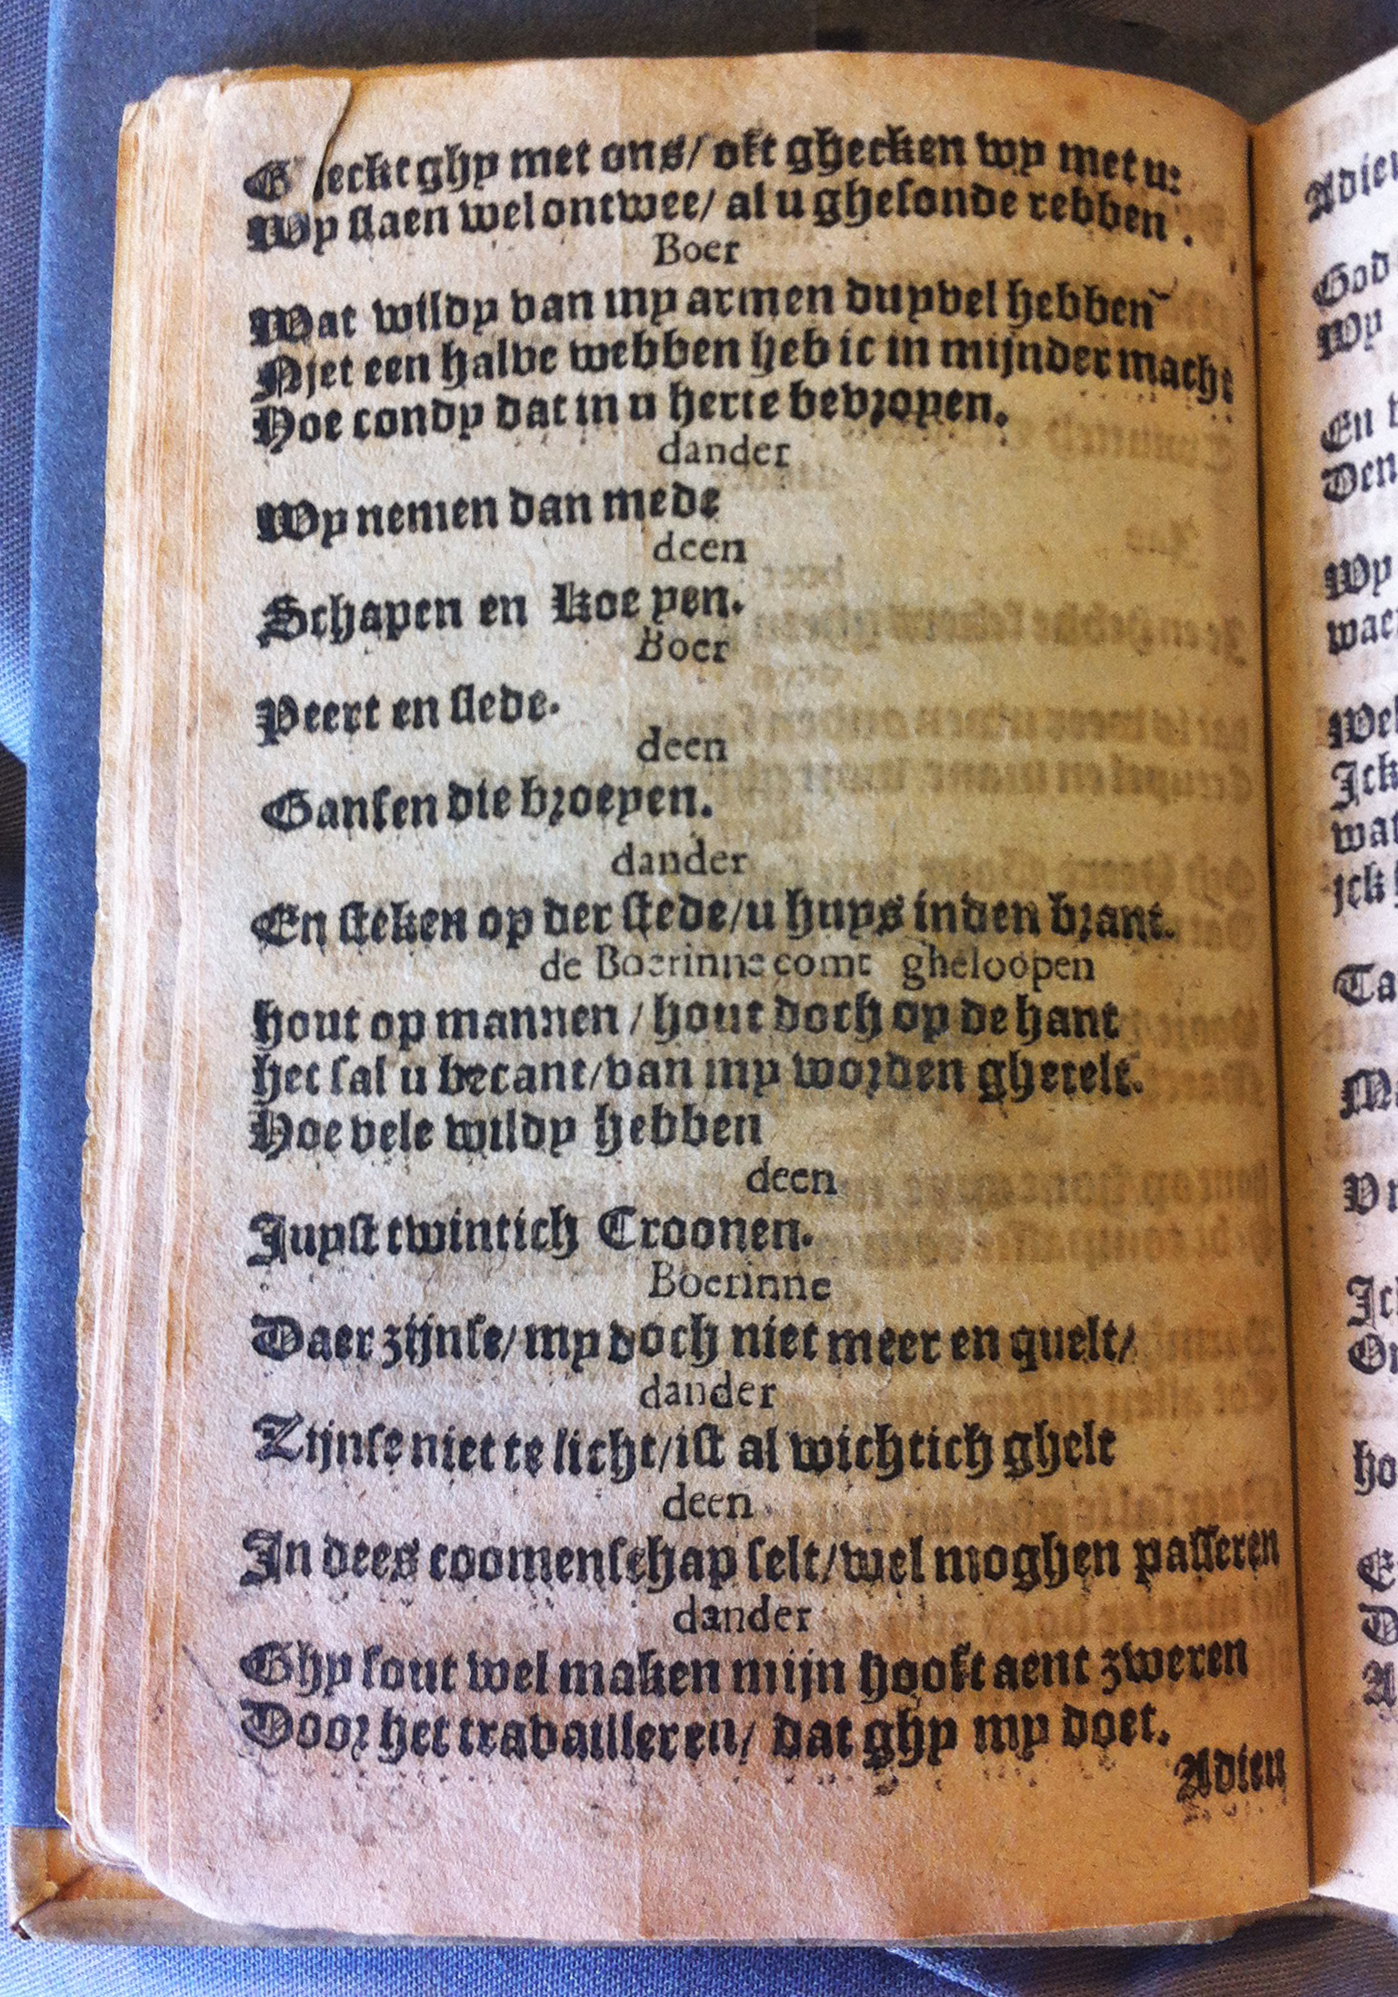 Gheckt ghy met ons/ oft ghecken wy met u:
Wy slaen wel ontwee/ al u ghesonde rebben.
Boer
Wat wildy van my armen duyvel hebben
Njet een halve webben heb ic in mijnder macht
Hoe condy dat in u herte bevroyen.
dander
Wy nemen dan mede
deen
Schapen en Koeyen.
Boer
Peert en slede.
deen
Gansen die broeyen.
dander
En steken op der stede/u huys inden brant.
de Boerinne comt gheloopen
hout op mannen / hout doch op de hant
het sal u becant/van my worden ghetelt.
Hoe vele wildy hebben
deen
Juyst twintich Croonen.
Boerinne
Daer zijnse/ my doch niet meer en quelt/
dander
Zijnse niet te licht/ist al wichtich ghelt
deen
In dees coomenschap selt/wel moghen passeren
dander
Ghy sout wel maken mijn hooft aent zweren
Door het travailleren/ dat ghy my doet.
Adieu
Adieu
God
Wy
En
Den
Wy
Wel
Jck
jck
Ta
ho